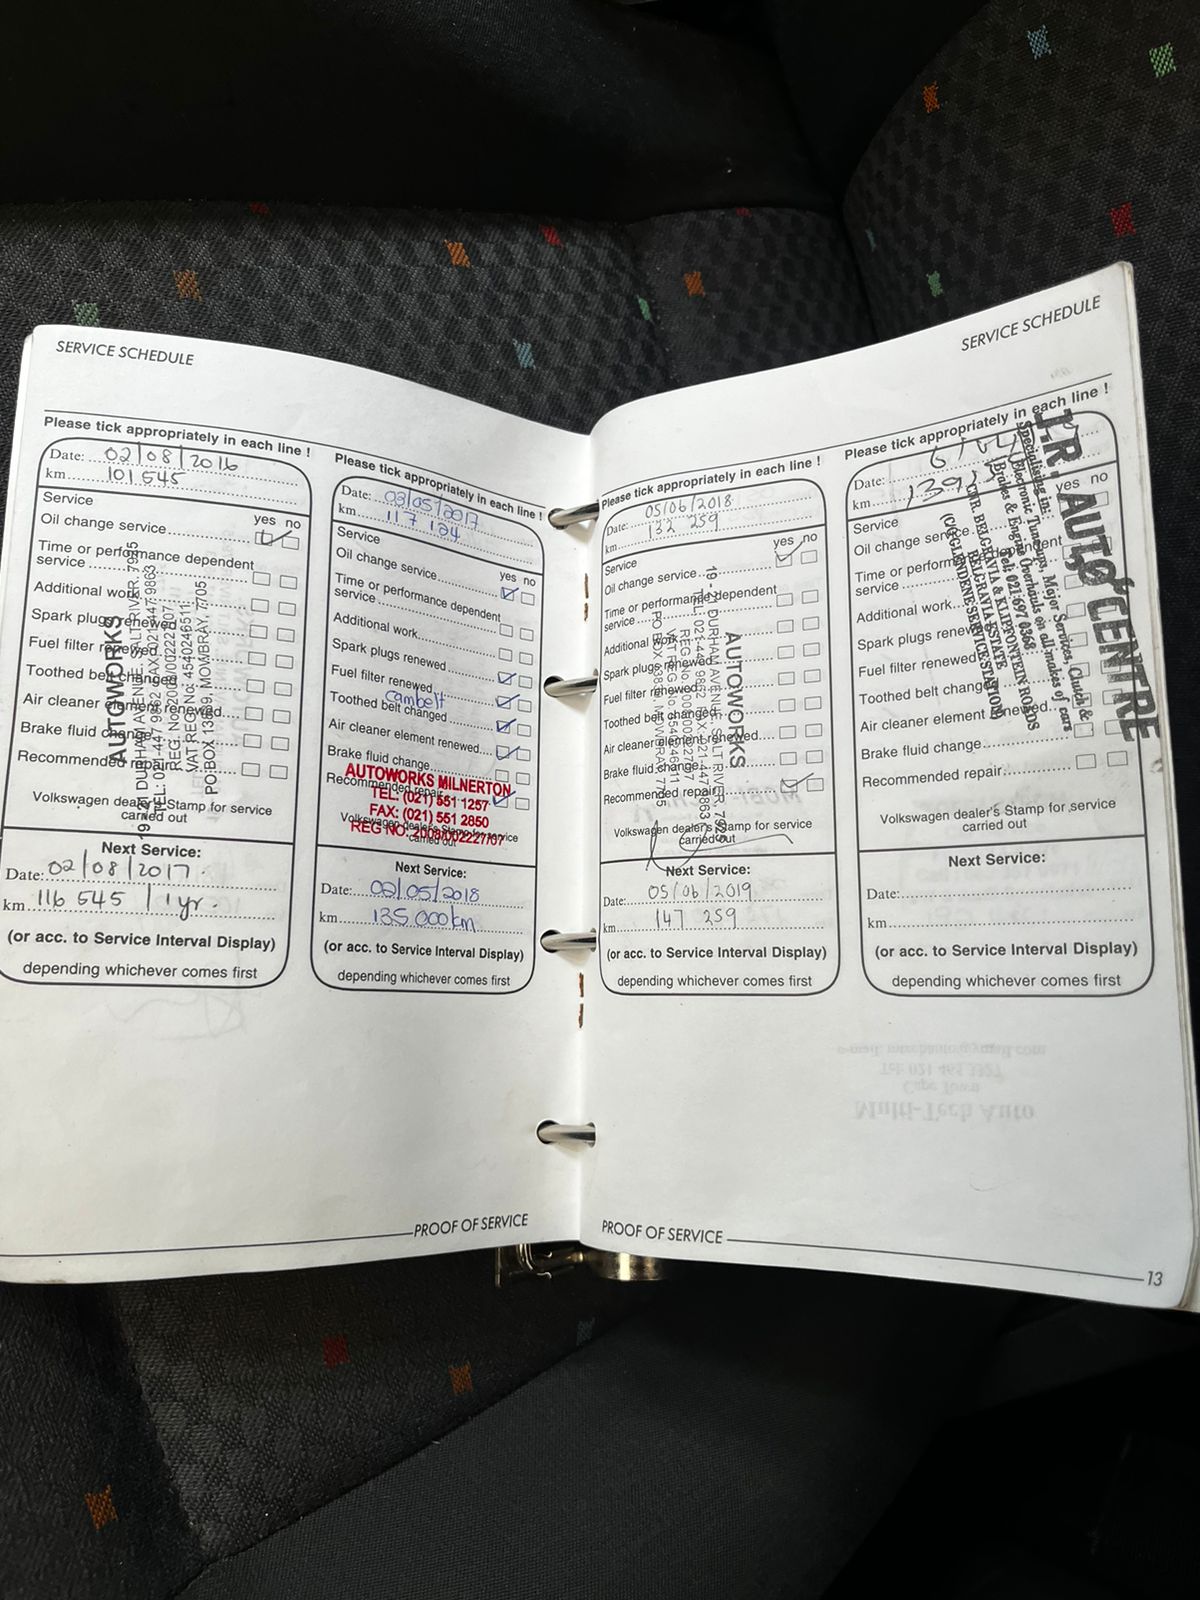 SERVICE SCHEDULE
Please tick appropriately in each line !
Date: 02/08/2016
km 101 545
Service
yes no
Oil change service
Time or performance dependent
service
Additional work
Spark plugs renewed
Fuel filter renewed
Toothed belt changed
Air cleaner element renewed
Brake fluid change
Recommended repair
AUTOWORKS
19 - 21 DURHAM AVENUE, SALT RIVER, 7925
TEL: 021-447 9862 FAX: 021-447 9863
REG. No: 2000/002227/07
VAT REG No: 4540246511
PO BOX 13869, MOWBRAY, 7705
Volkswagen dealer's Stamp for service
carried out
Next Service:
Date: 02/08/2017
km 116 545 / 1yr.
(or acc. to Service Interval Display)
depending whichever comes first
Please tick appropriately in each line !
Date: 03/05/2017
km 117 124
Service
yes no
Oil change service
Time or performance dependent
service
Additional work
Spark plugs renewed
Fuel filter renewed
Cambelt
Toothed belt changed
Air cleaner element renewed
Brake fluid change
Recommended repair
AUTOWORKS MILNERTON
TEL: (021) 551 1257
FAX: (021) 551 2850
REG NO: 2008/002227/07
Volkswagen dealer's Stamp for service
carried out
Next Service:
Date: 02/05/2018
km 135 000km
(or acc. to Service Interval Display)
depending whichever comes first
PROOF OF SERVICE
SERVICE SCHEDULE
Please tick appropriately in each line !
Date: 05/06/2018
km 132 259
Service
yes no
Oil change service
Time or performance dependent
service
Additional work
Spark plugs renewed
Fuel filter renewed
Toothed belt changed
Air cleaner element renewed
Brake fluid change
Recommended repair
AUTOWORKS
19 - 21 DURHAM AVENUE, SALT RIVER, 7925
TEL: 021-447 9862 FAX: 021-447 9863
PO BOX 13869, MOWBRAY, 7705
Volkswagen dealer's Stamp for service
carried out
Next Service:
Date: 05/06/2019
km 147 259
(or acc. to Service Interval Display)
depending whichever comes first
Please tick appropriately in each line !
Date:
km
Service
yes no
Oil change service
Time or performance dependent
service
Additional work
Spark plugs renewed
Fuel filter renewed
Toothed belt changed
Air cleaner element renewed
Brake fluid change
Recommended repair
J.R. AUTO CENTRE
Specialising in:
Electronic Tune-ups, Major Services, Clutch &
Brakes & Engine Overhauls on all makes of cars
Tel: 021 697 0368
CNR. BELGRAVIA & KLIPFONTEIN ROADS
BELGRAVIA ESTATE
(C/O GLENDENE SERVICE STATION)
Volkswagen dealer's Stamp for service
carried out
Next Service:
Date:
km
(or acc. to Service Interval Display)
depending whichever comes first
Multi-Tech Auto
Cape Town
PROOF OF SERVICE
13